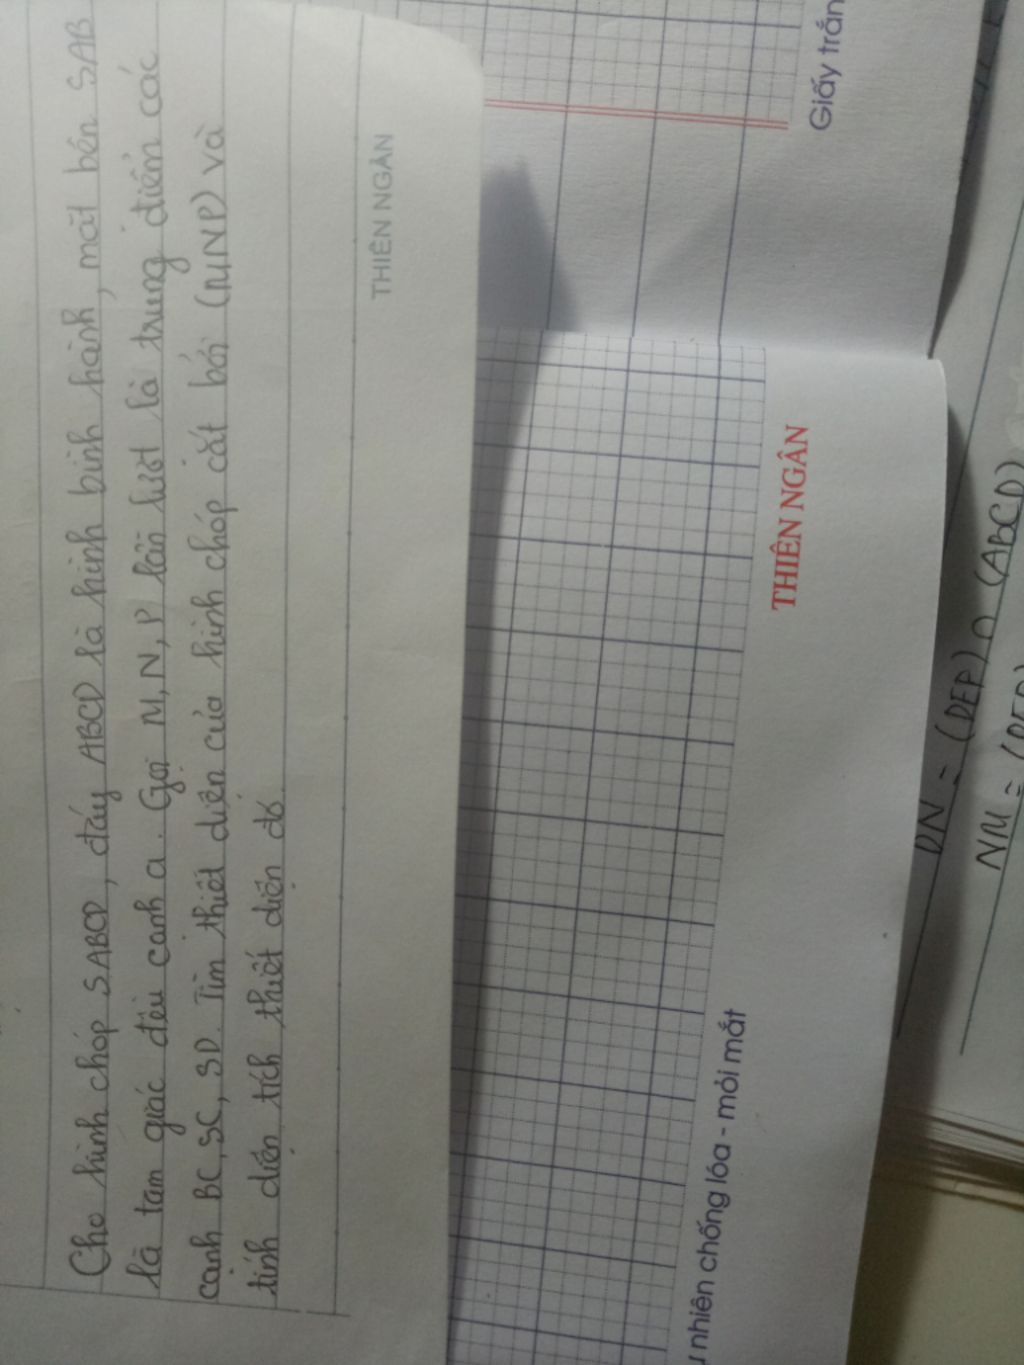 Cho hình chóp SABCD, đáy ABCD là hình bình hành, mặt bên SAB
là tam giác đều cạnh a. Gọi M, N, P lần lượt là trung điểm các
cạnh BC, SC, SD. Tìm thiết diện của hình chóp cắt bởi (MNP) và
tính diện tích thiết diện đó.
THIÊN NGÂN
Giấy trắn
THIÊN NGÂN
nhiên chống lóa - mỏi mắt
DN = (DEP) ∩ (ABCD)
NM =